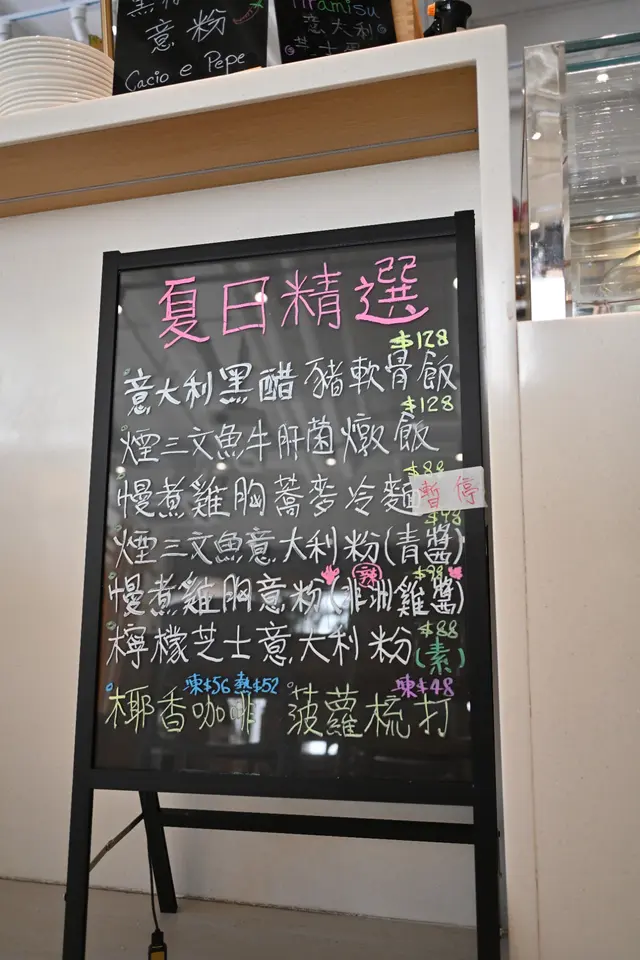 意粉
Cacio e Pepe
Tiramisu
意大利
夏日精選
$128
意大利黑醋豬軟骨飯
$128
煙三文魚牛肝菌燉飯
$88
慢煮雞胸蕎麥冷麵 暫停
$98
煙三文魚意大利粉(青醬)
辣 $98
慢煮雞胸意粉(非洲雞醬)
$88
檸檬芝士意大利粉(素)
凍$56 熱$52 凍$48
椰香咖啡 菠蘿梳打